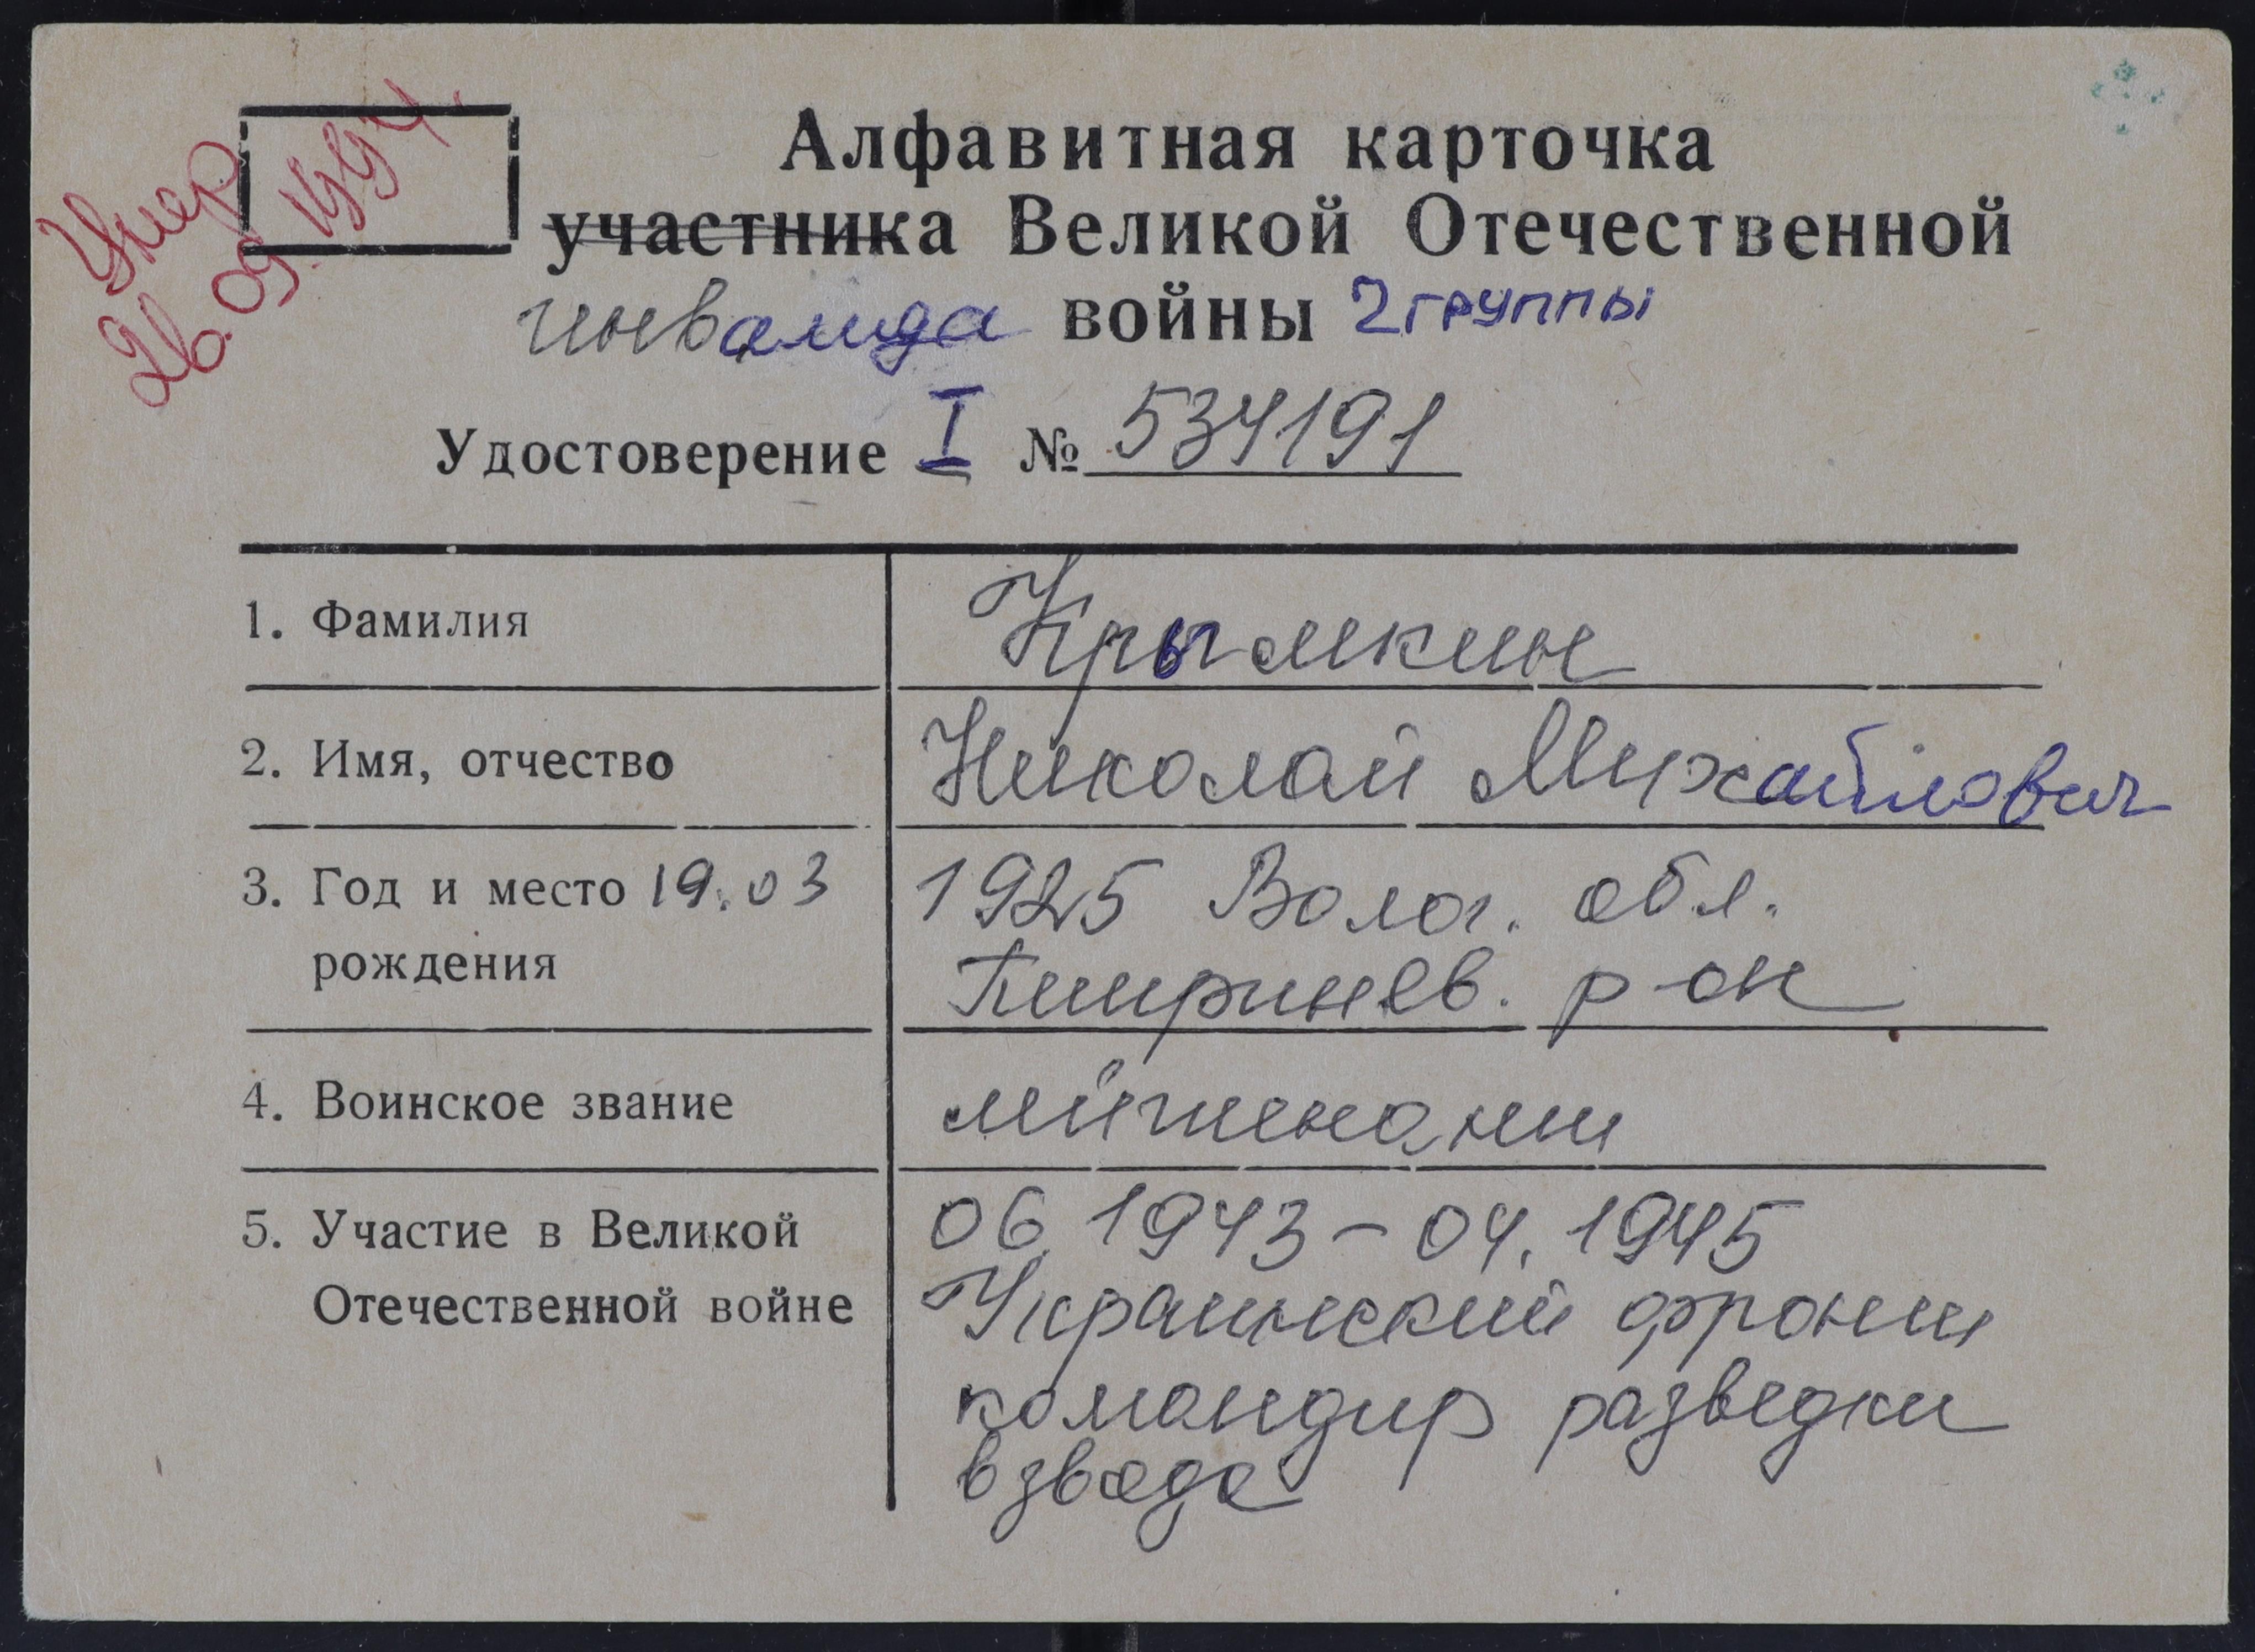 Умер
26.09.1994.
Алфавитная карточка
участника Великой Отечественной
инвалида войны 2 группы
Удостоверение I № 534191
1. Фамилия Крымкин
2. Имя, отчество Николай Михайлович
3. Год и место 19.03 1925 Волог. обл.
рождения р-он
4. Воинское звание лейтенант
5. Участие в Великой 06.1943 – 04.1945
Отечественной войне Украинский фронт
командир разведки
взвода